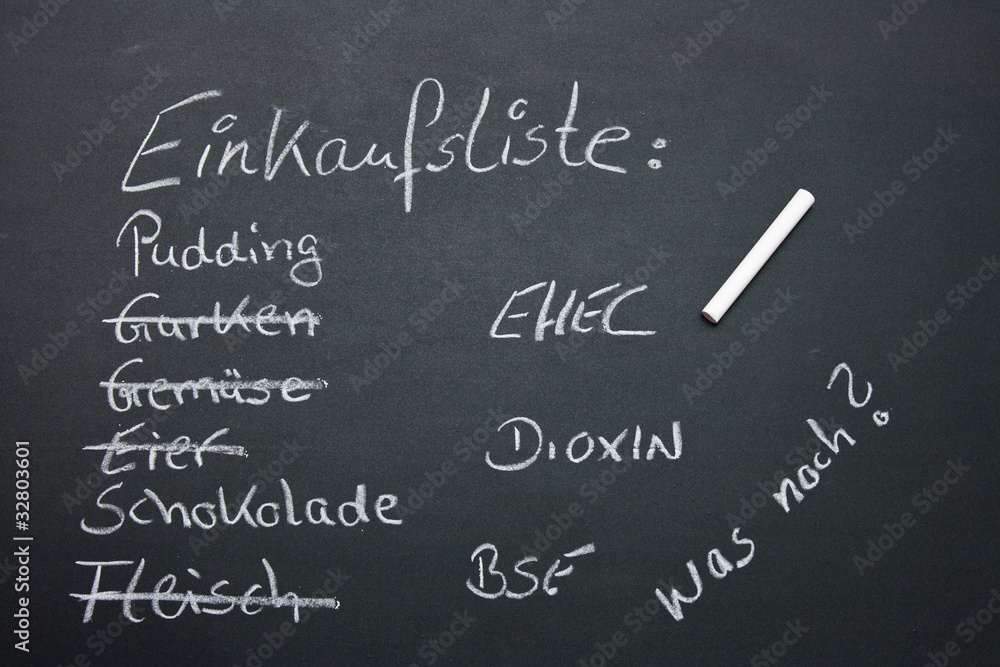 Einkaufsliste:
Pudding
Gurken
EHEC
Gemüse
Eier
DIOXIN
Schokolade
Fleisch
BSE
Was noch?
Adobe Stock | #32803601